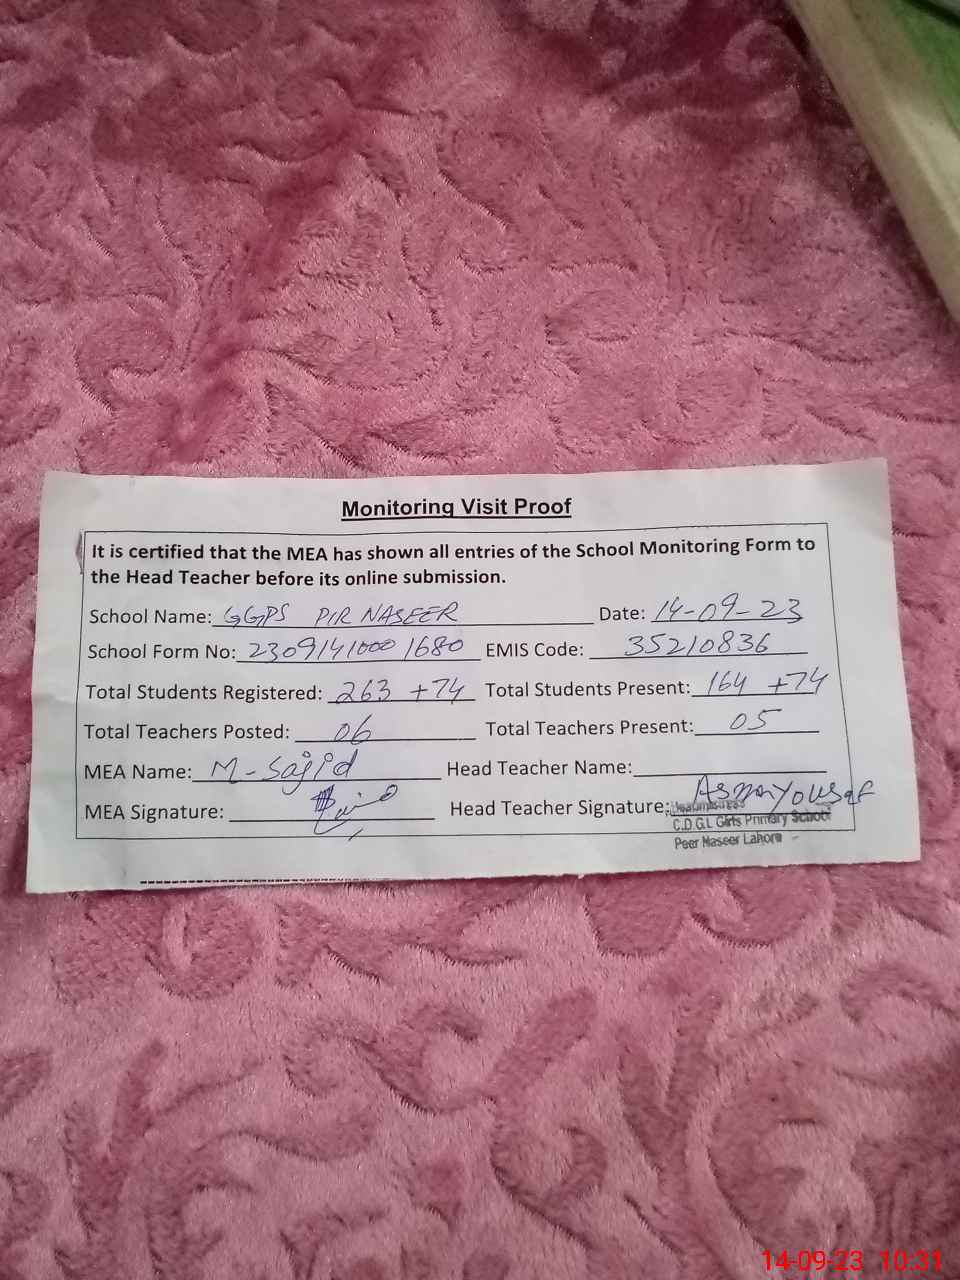 Monitoring Visit Proof
It is certified that the MEA has shown all entries of the School Monitoring Form to
the Head Teacher before its online submission.
School Name: GGPS PIR NASEER Date: 14-09-23
School Form No: 23091410001680 EMIS Code: 35210836
Total Students Registered: 263 +74 Total Students Present: 164 +74
Total Teachers Posted: 06 Total Teachers Present: 05
MEA Name: M-Sajid Head Teacher Name:
MEA Signature: Head Teacher Signature: Asma Yousaf
Headmistress
C.D.G.L Girls Primary School
Peer Naseer Lahore
14-09-23 10:31